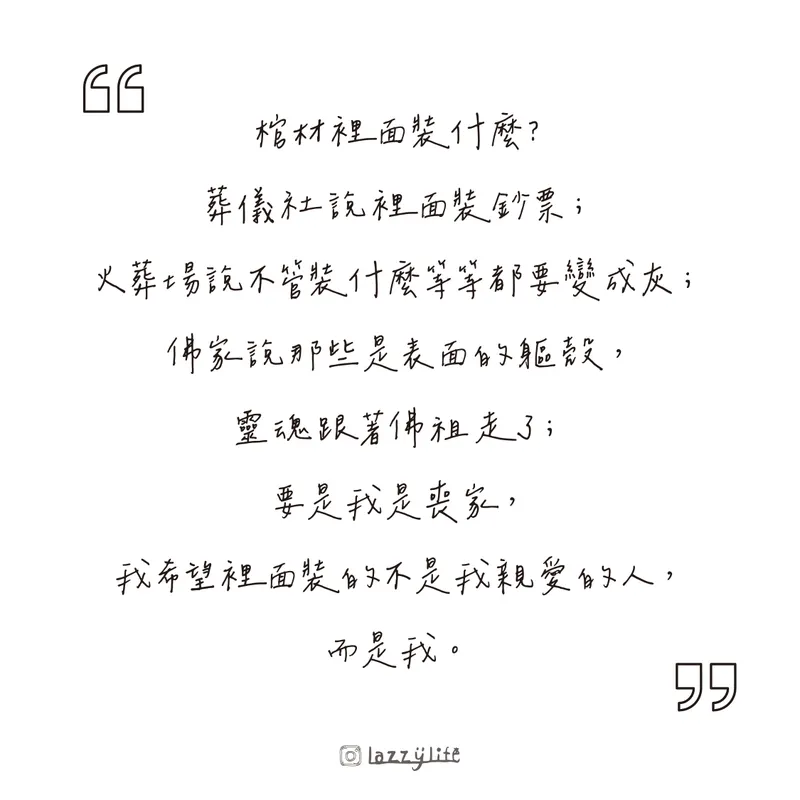 棺材裡面裝什麼?
葬儀社說裡面裝鈔票；
火葬場說不管裝什麼等等都要變成灰；
佛家說那些是表面的軀殼，
靈魂跟著佛祖走了；
要是我是喪家，
我希望裡面裝的不是我親愛的人，
而是我。
lazzylife